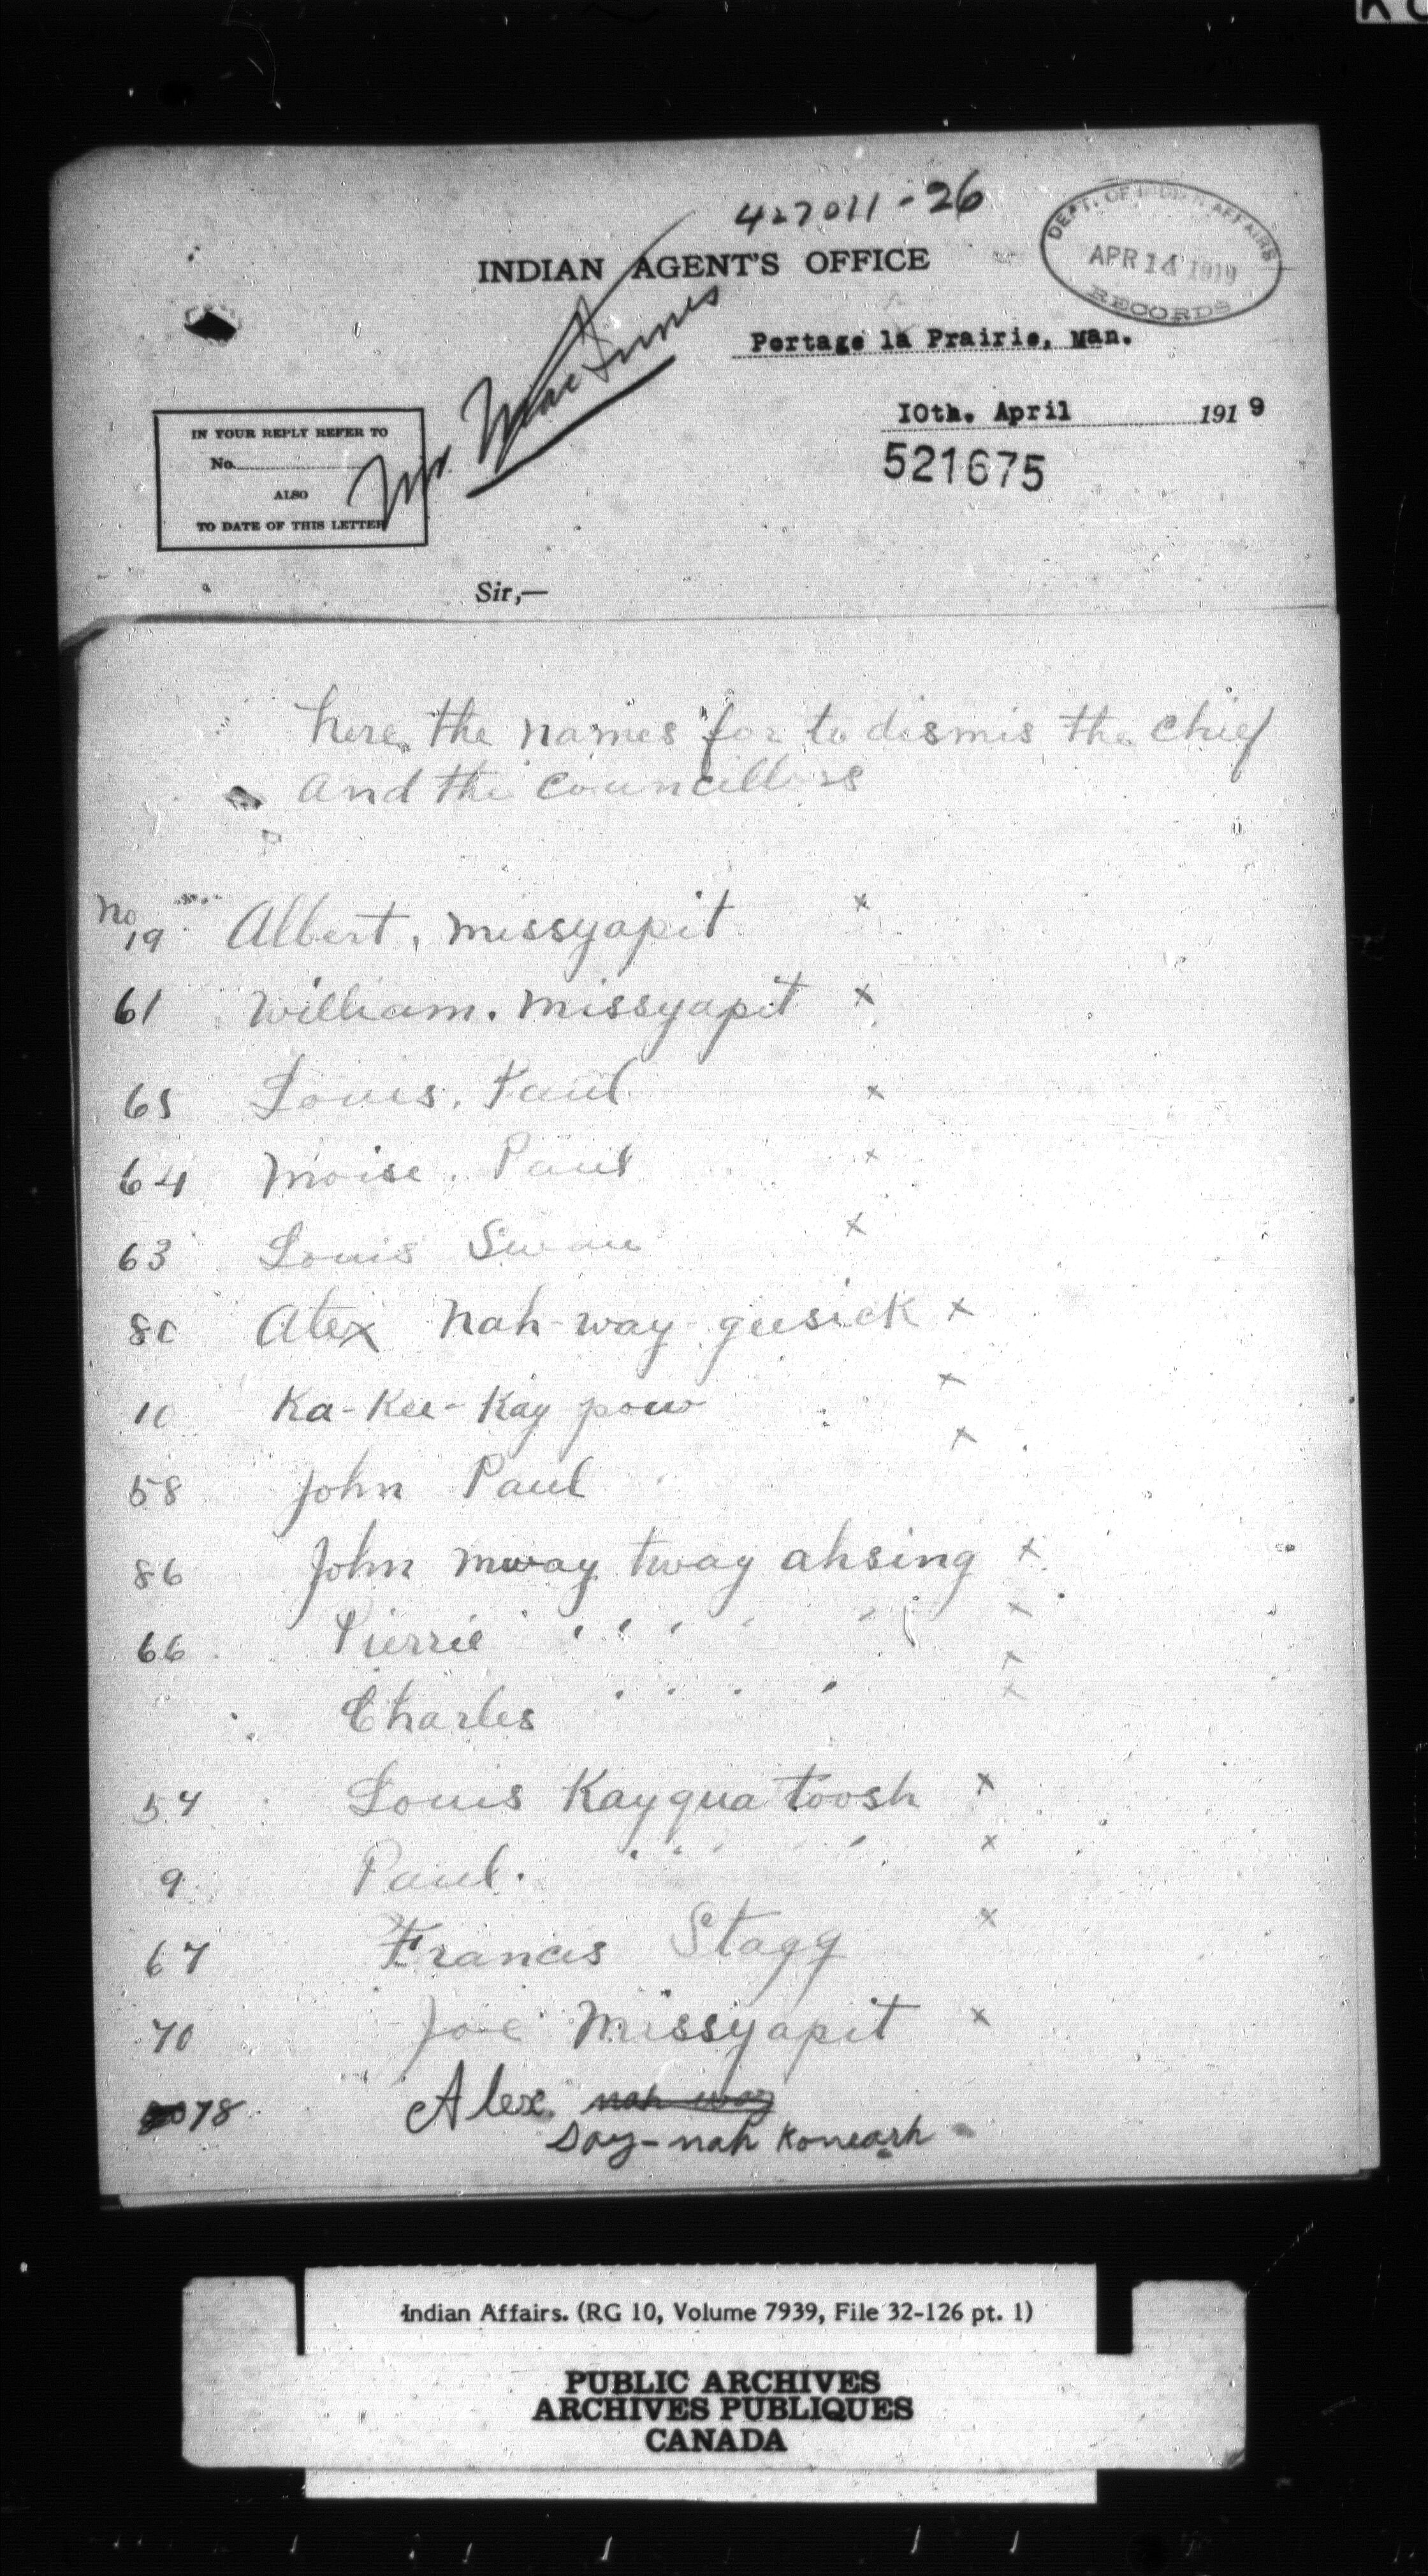 427011-26
INDIAN AGENT'S OFFICE
DEPT. OF INDIAN AFFAIRS
APR 14 1919
RECORDS
Portage la Prairie, Man.
Mr. MacInnes
10th. April 1919
521675
IN YOUR REPLY REFER TO
No.
ALSO
TO DATE OF THIS LETTER
Sir,—
here the names for to dismis the chief
and the councillors
No
19 Albert. missyapit x
61 William. missyapit x
65 Louis. Paul x
64 Moise. Paul x
63 Louis Swan x
80 Alex Nah-way-geesick x
10 Ka-Kee-Kay pow x
58 John Paul x
86 John mway tway ahsing x
66 Pierrie " " " " x
Charles " " " " x
x
54 Louis Kayqua toosh x
9 Paul. " " " " x
67 Francis Stagg x
70 Joe missyapit x
78 Alex nah way
Day-nah Koneash
Indian Affairs. (RG 10, Volume 7939, File 32-126 pt. 1)
PUBLIC ARCHIVES
ARCHIVES PUBLIQUES
CANADA